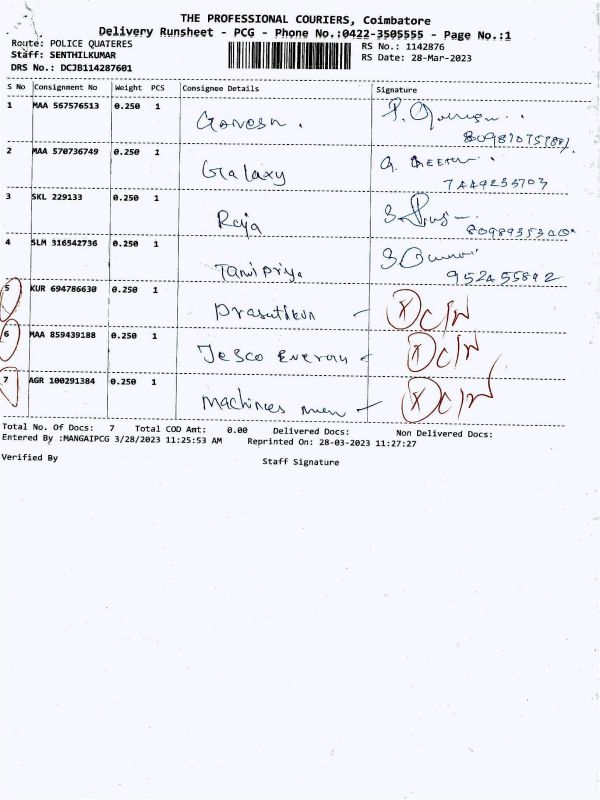 THE PROFESSIONAL COURIERS, Coimbatore
Delivery Runsheet - PCG - Phone No.:0422-3505555 - Page No.:1
Route: POLICE QUATERES RS No.: 1142876
Staff: SENTHILKUMAR RS Date: 28-Mar-2023
DRS No.: DCJB114287601
S No Consignment No Weight PCS Consignee Details Signature
1 MAA 567576513 0.250 1 Ganesh.
2 MAA 570736749 0.250 1 Galaxy
3 SKL 229133 0.250 1 Raja
4 SLM 316542736 0.250 1 Tamil priya
5 KUR 694786630 0.250 1 X C/N
6 MAA 859439188 0.250 1 Jesco Energy X C/N
7 AGR 100291384 0.250 1 Machines men X C/N
Total No. Of Docs: 7 Total COD Amt: 0.00 Delivered Docs: Non Delivered Docs:
Entered By :MANGAIPCG 3/28/2023 11:25:53 AM Reprinted On: 28-03-2023 11:27:27
Verified By Staff Signature